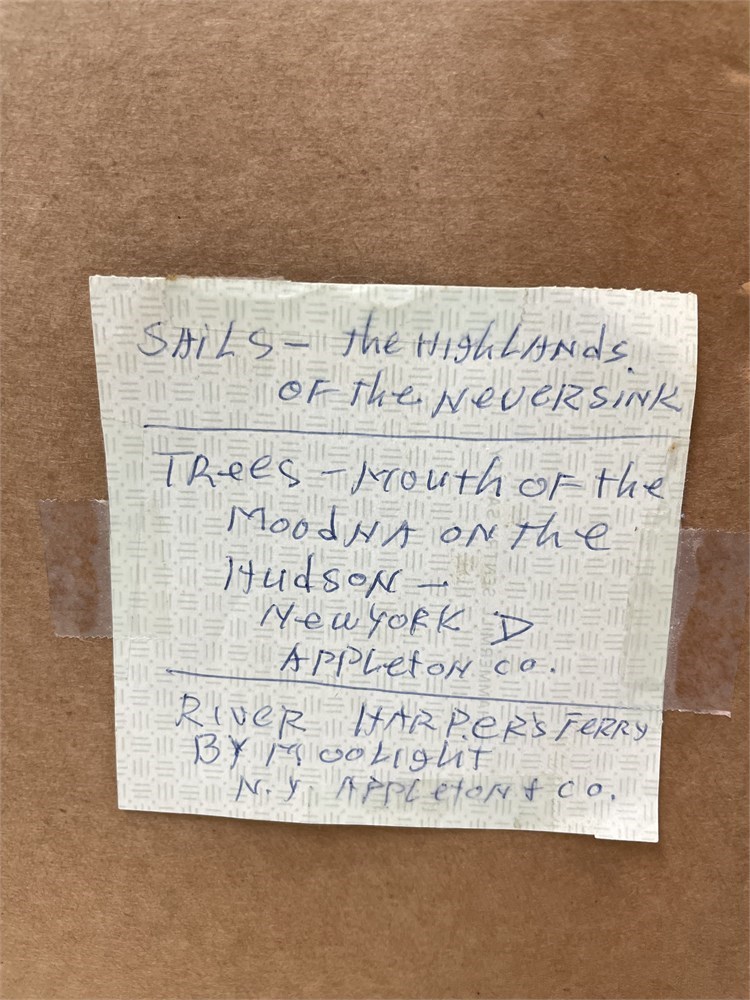 SAiLS - the HighLANds
OF the NeverSINK
TRees - Mouth OF the
MoodNA ON the
HudSON -
New YORK D
APPLetON CO.
RIVER HARPER'S FERRY
BY MOOLIGHT
N.Y. APPLetON & CO.